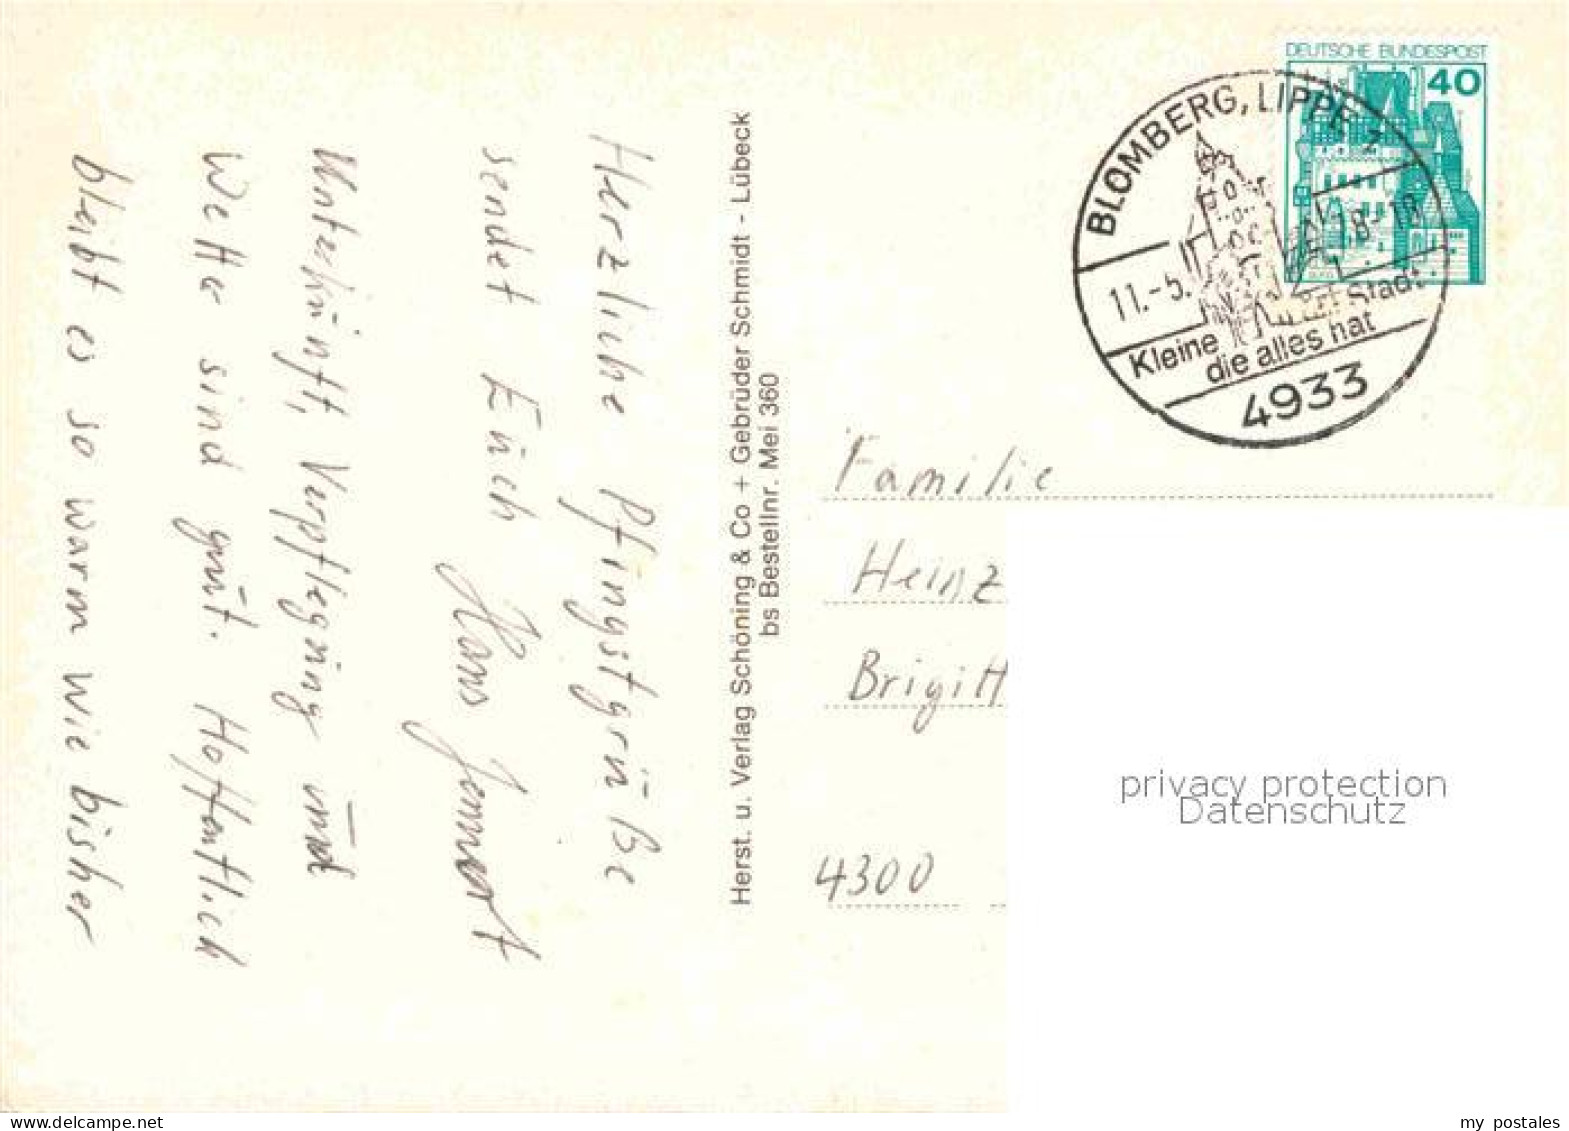 Herzliche Pfingstgrüße
sendet Euch Hans
Unterkünft, Verpflegung und
Wetter sind gut. Hoffentlich
bleibt es so warm wie bisher
Herst. u. Verlag Schöning & Co + Gebrüder Schmidt - Lübeck
bs Bestellnr. Mei 360
DEUTSCHE BUNDESPOST
40
BLOMBERG, LIPPE 1
11.-5. 18-18
Kleine Stadt
die alles hat
4933
Familie
Heinz
Brigitt
4300
privacy protection
Datenschutz
delcampe.net
my postales